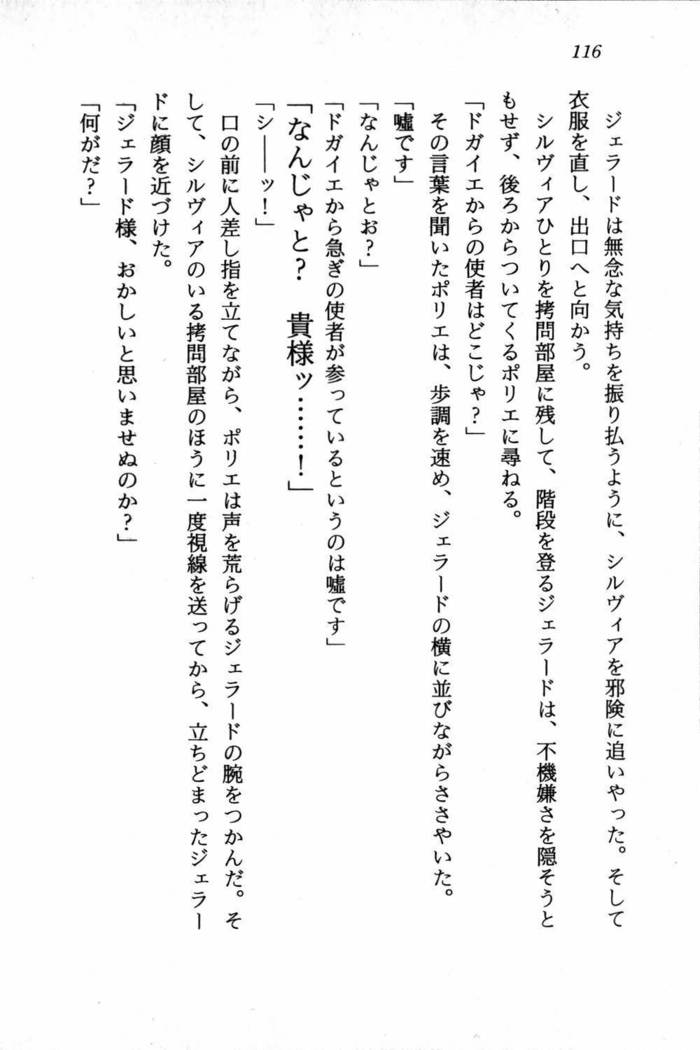 116
ジェラードは無念な気持ちを振り払うように、シルヴィアを邪険に追いやった。そして
衣服を直し、出口へと向かう。
シルヴィアひとりを拷問部屋に残して、階段を登るジェラードは、不機嫌さを隠そうと
もせず、後ろからついてくるポリエに尋ねる。
「ドガイエからの使者はどこじゃ?」
その言葉を聞いたポリエは、歩調を速め、ジェラードの横に並びながらささやいた。
「嘘です」
「なんじゃとお?」
「ドガイエから急ぎの使者が参っているというのは嘘です」
「なんじゃと? 貴様ッ……!」
「シ――ッ!」
口の前に人差し指を立てながら、ポリエは声を荒らげるジェラードの腕をつかんだ。そ
して、シルヴィアのいる拷問部屋のほうに一度視線を送ってから、立ちどまったジェラー
ドに顔を近づけた。
「ジェラード様、おかしいと思いませぬのか?」
「何がだ?」